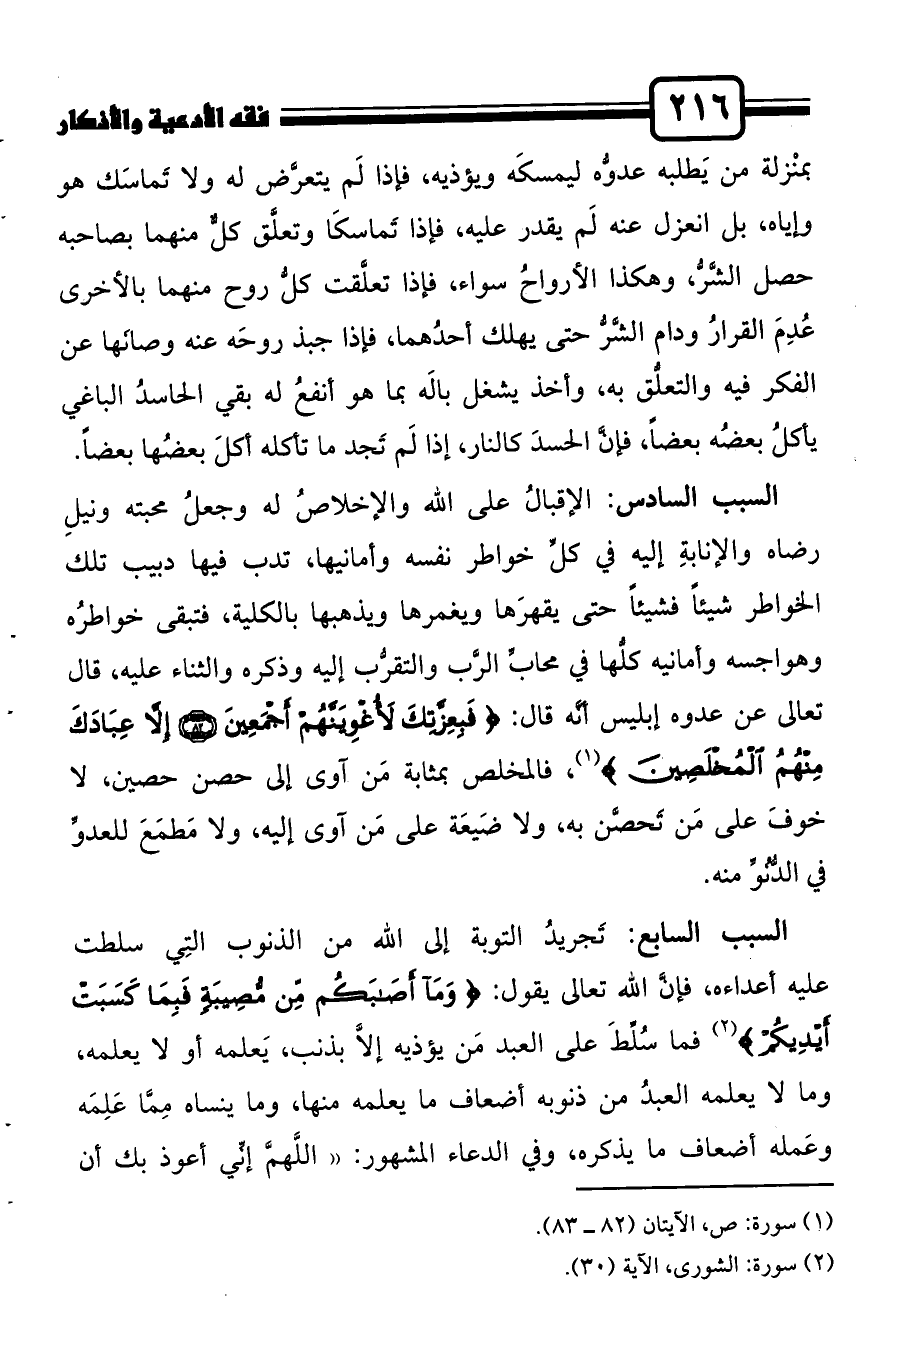 ٢١٦ فقه الأدعية والأذكار
بمْنْزلة من يَطلبه عدوُّه ليمسكَه ويؤذيه، فإذا لَم يتعرَّض له ولا تَماسَك هو
وإياه، بل انعزل عنه لَم يقدر عليه، فإذا تَماسكَا وتعلَّق كلٌّ منهما بصاحبه
حصل الشَّرُّ، وهكذا الأرواحُ سواء، فإذا تعلَّقت كلُّ روح منهما بالأخرى
عُدِمَ القرارُ ودام الشَّرُّ حتى يهلك أحدُهما، فإذا جبذ روحَه عنه وصانَها عن
الفكر فيه والتعلُّق به، وأخذ يشغل بالَه بما هو أنفعُ له بقي الحاسدُ الباغي
يأكلُ بعضُه بعضاً، فإنَّ الحسدَ كالنار، إذا لَم تَجد ما تأكله أكلَ بعضُها بعضاً.
السبب السادس: الإقبالُ على الله والإخلاصُ له وجعلُ محبته ونيلِ
رضاه والإنابةِ إليه في كلِّ خواطر نفسه وأمانيها، تدب فيها دبيب تلك
الخواطر شيئاً فشيئاً حتى يقهرَها ويغمرها ويذهبها بالكلية، فتبقى خواطرُه
وهواجسه وأمانيه كلُّها في محابِّ الرَّب والتقرُّب إليه وذكره والثناء عليه، قال
تعالى عن عدوه إبليس أنَّه قال: ﴿ فَبِعِزَّتِكَ لَأُغْوِيَنَّهُمْ أَجْمَعِينَ ﴿٨٢﴾ إِلَّا عِبَادَكَ
مِنْهُمُ ٱلْمُخْلَصِينَ ﴾(١)، فالمخلص بمثابة مَن آوى إلى حصن حصين، لا
خوفَ على مَن تَحصَّن به، ولا ضَيعَة على مَن آوى إليه، ولا مَطمَعَ للعدوِّ
في الدُّنُوِّ منه.
السبب السابع: تَجريدُ التوبة إلى الله من الذنوب التِي سلطت
عليه أعداءه، فإنَّ الله تعالى يقول: ﴿ وَمَآ أَصَـٰبَكُم مِّن مُّصِيبَةٍ فَبِمَا كَسَبَتْ
أَيْدِيكُمْ﴾(٢) فما سُلِّطَ على العبد مَن يؤذيه إلاَّ بذنب، يَعلمه أو لا يعلمه،
وما لا يعلمه العبدُ من ذنوبه أضعاف ما يعلمه منها، وما ينساه مِمَّا عَلِمَه
وعَمله أضعاف ما يذكره، وفي الدعاء المشهور: « اللَّهمَّ إنِّي أعوذ بك أن
(١) سورة: ص، الآيتان (٨٢ ـ ٨٣).
(٢) سورة: الشورى، الآية (٣٠).